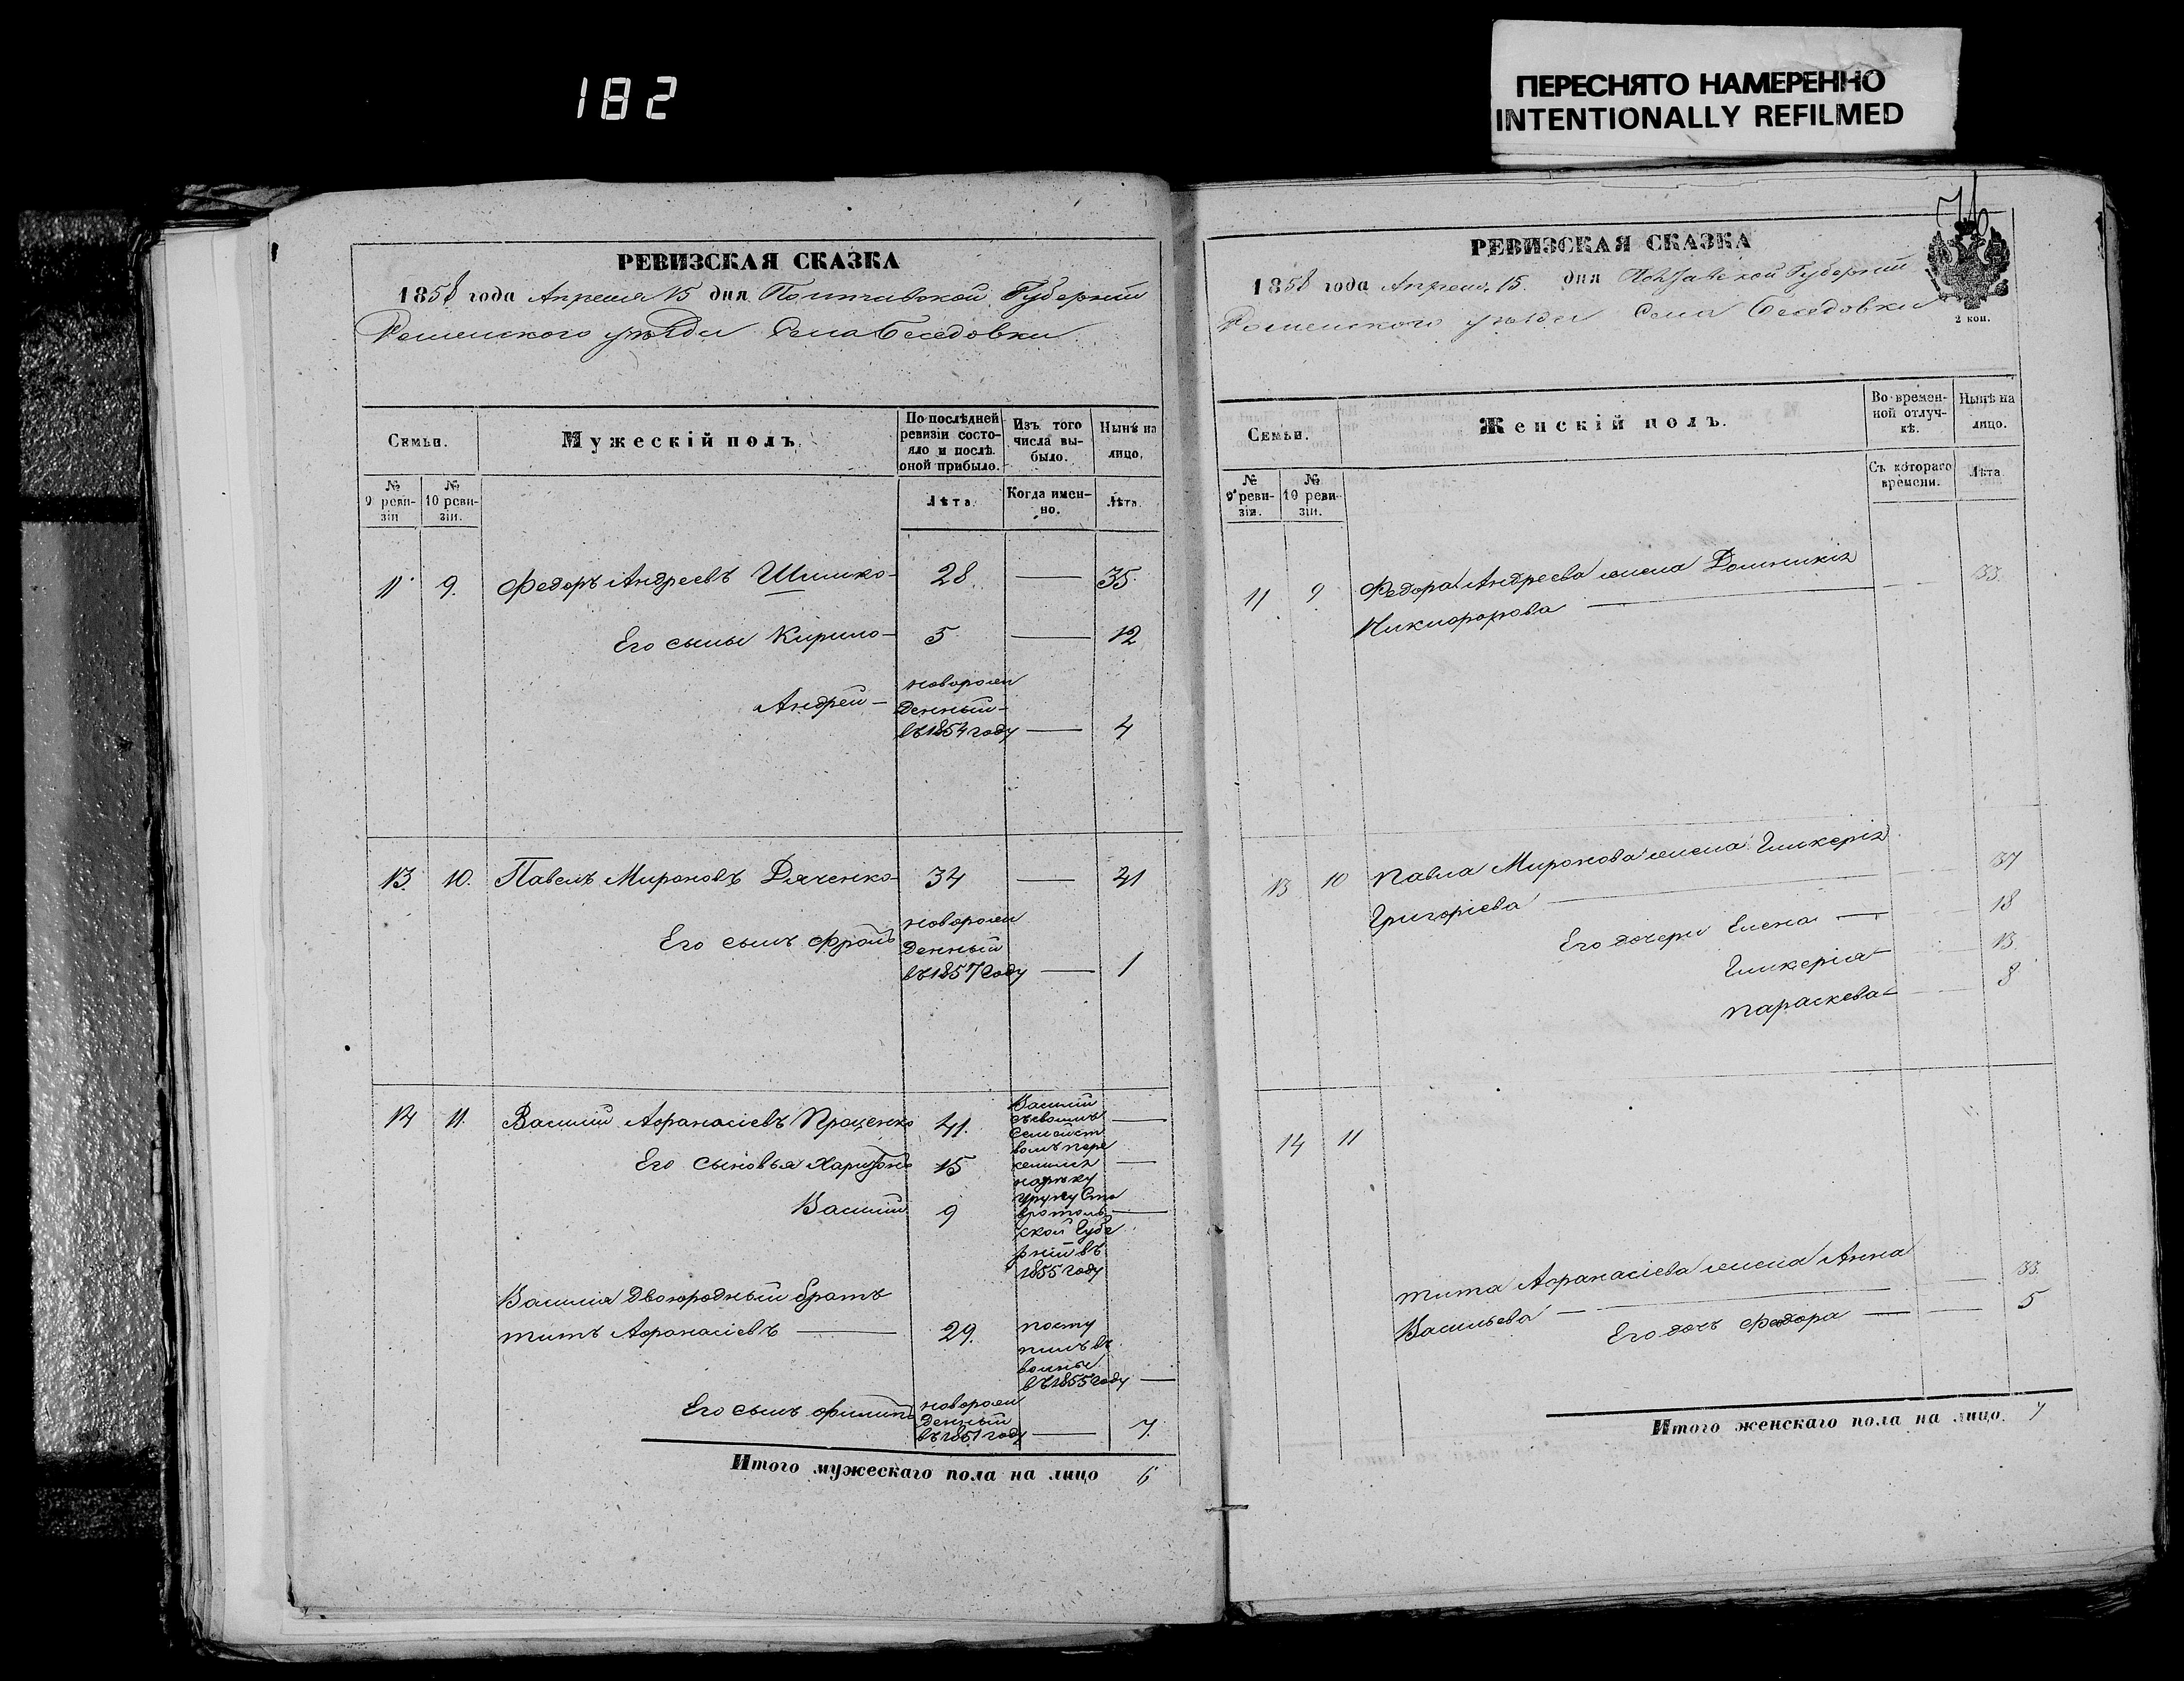 182
ПЕРЕСНЯТО НАМЕРЕННО
INTENTIONALLY REFILMED
РЕВИЗСКАЯ СКАЗКА
1858 года Апреля 15 дня Полтавской Губерніи
Роменского уѣзда Села Беседовки
Семьи.
Мужескій полъ.
По послѣдней ревизіи состояло и послѣ оной прибыло.
Изъ того числа выбыло.
Нынѣ на лицо.
№ 9 ревизіи
№ 10 ревизіи.
Лѣта.
Когда именно.
Лѣта.
11 9. Федоръ Андреевъ Шишко 28 — 35.
Его сыны Кирило 5 — 12
Андрей — новорож
денный
въ 1854 году — 4
13. 10. Павелъ Мироновъ Дяченко 34 — 41
Его сынъ Фролъ новорож
денный
въ 1857 году — 1
14 11. Василій Афанасіевъ Проценко 41. —
Его сыновья Харитонъ 15 —
Василий 9 —
Василий
съ своимъ
Семейст
вомъ пере
селился
на рѣку
Урупу Ста
врополь
ской Губе
рніи въ
1855 году
Василія двоюродный братъ
Титъ Афанасіевъ — 29.
посту
пилъ въ
воины
въ 1855 году —
Его сынъ Филипъ новорож
денный
въ 1851 году — 7.
Итого мужескаго пола на лицо 6
76
РЕВИЗСКАЯ СКАЗКА
1858 года Апреля 15. дня Полтавской Губерніи
Роменского уѣзда Села Беседовки
2 коп.
Семьи.
Женскій полъ.
Во временной отлучкѣ.
Нынѣ на лицо.
№ 9 ревизіи.
№ 10 ревизіи.
Съ котораго времени.
Лѣта
11 9 Федора Андреева жена Домникія
Никифорова — — 33.
13 10 Павла Миронова жена Гликерія
Григоріева — 37
Его дочери Елена — 18
Гликерія — 13.
Параскева — 8
14 11
Тита Афанасіева жена Анна
Васильева — — 33.
Его дочь Феодора — — 5
Итого женскаго пола на лицо. 7